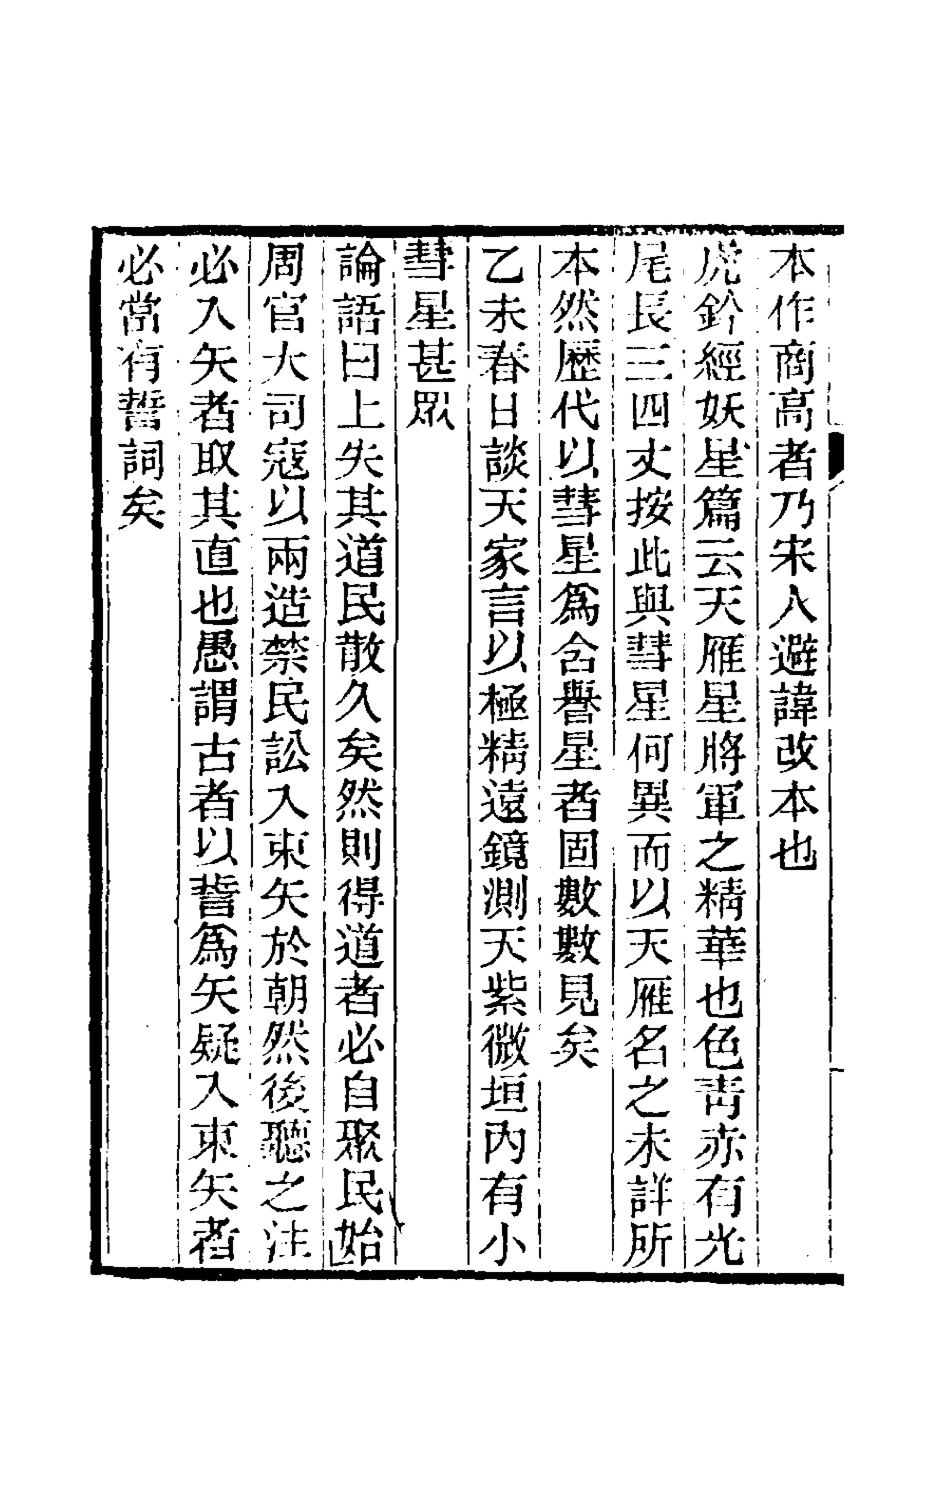 本作商高者乃宋人避諱改本也
虎鈐經妖星篇云天雁星將軍之精華也色靑赤有光
尾長三四丈按此與彗星何異而以天雁名之未詳所
本然歷代以彗星爲含譽星者固數數見矣
乙未春日談天家言以極精遠鏡測天紫微垣內有小
彗星甚眾
論語曰上失其道民散久矣然則得道者必自聚民始
周官大司寇以兩造禁民訟入束矢於朝然後聽之注
必入矢者取其直也愚謂古者以誓爲矢疑入束矢者
必當有誓詞矣